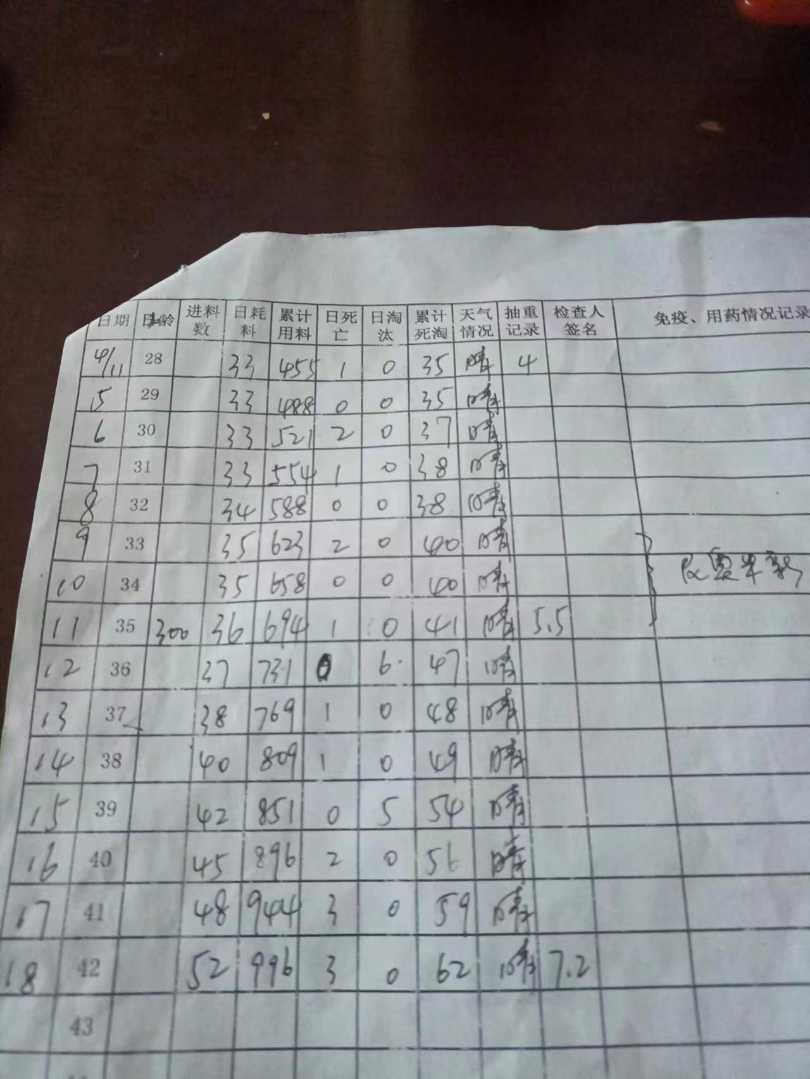 日期 日龄 进料数 日耗料 累计用料 日死亡 日淘汰 累计死淘 天气情况 抽重记录 检查人签名 免疫、用药情况记录
4/11 28 33 455 1 0 35 晴 4
5 29 33 488 0 0 35 晴
6 30 33 521 2 0 37 晴
7 31 33 554 1 0 38 晴
8 32 34 588 0 0 38 晴
9 33 35 623 2 0 40 晴
10 34 35 658 0 0 40 晴
11 35 300 36 694 1 0 41 晴 5.5
12 36 37 731 0 6 47 晴
13 37 38 769 1 0 48 晴
14 38 40 809 1 0 49 晴
15 39 42 851 0 5 54 晴
16 40 45 896 2 0 56 晴
17 41 48 944 3 0 59 晴
18 42 52 996 3 0 62 晴 7.2
43